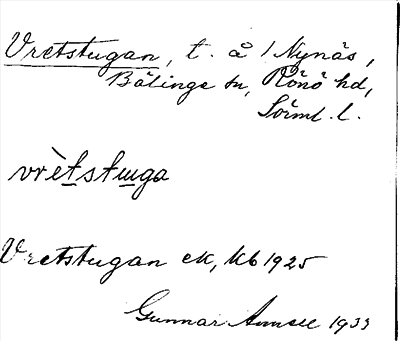 Vretstugan, t. å 1 Nynäs,
Bälinge sn, Rönö hd,
Sörml. l.
vrètstuga
Vretstugan ek, kb 1925
Gunnar 1933